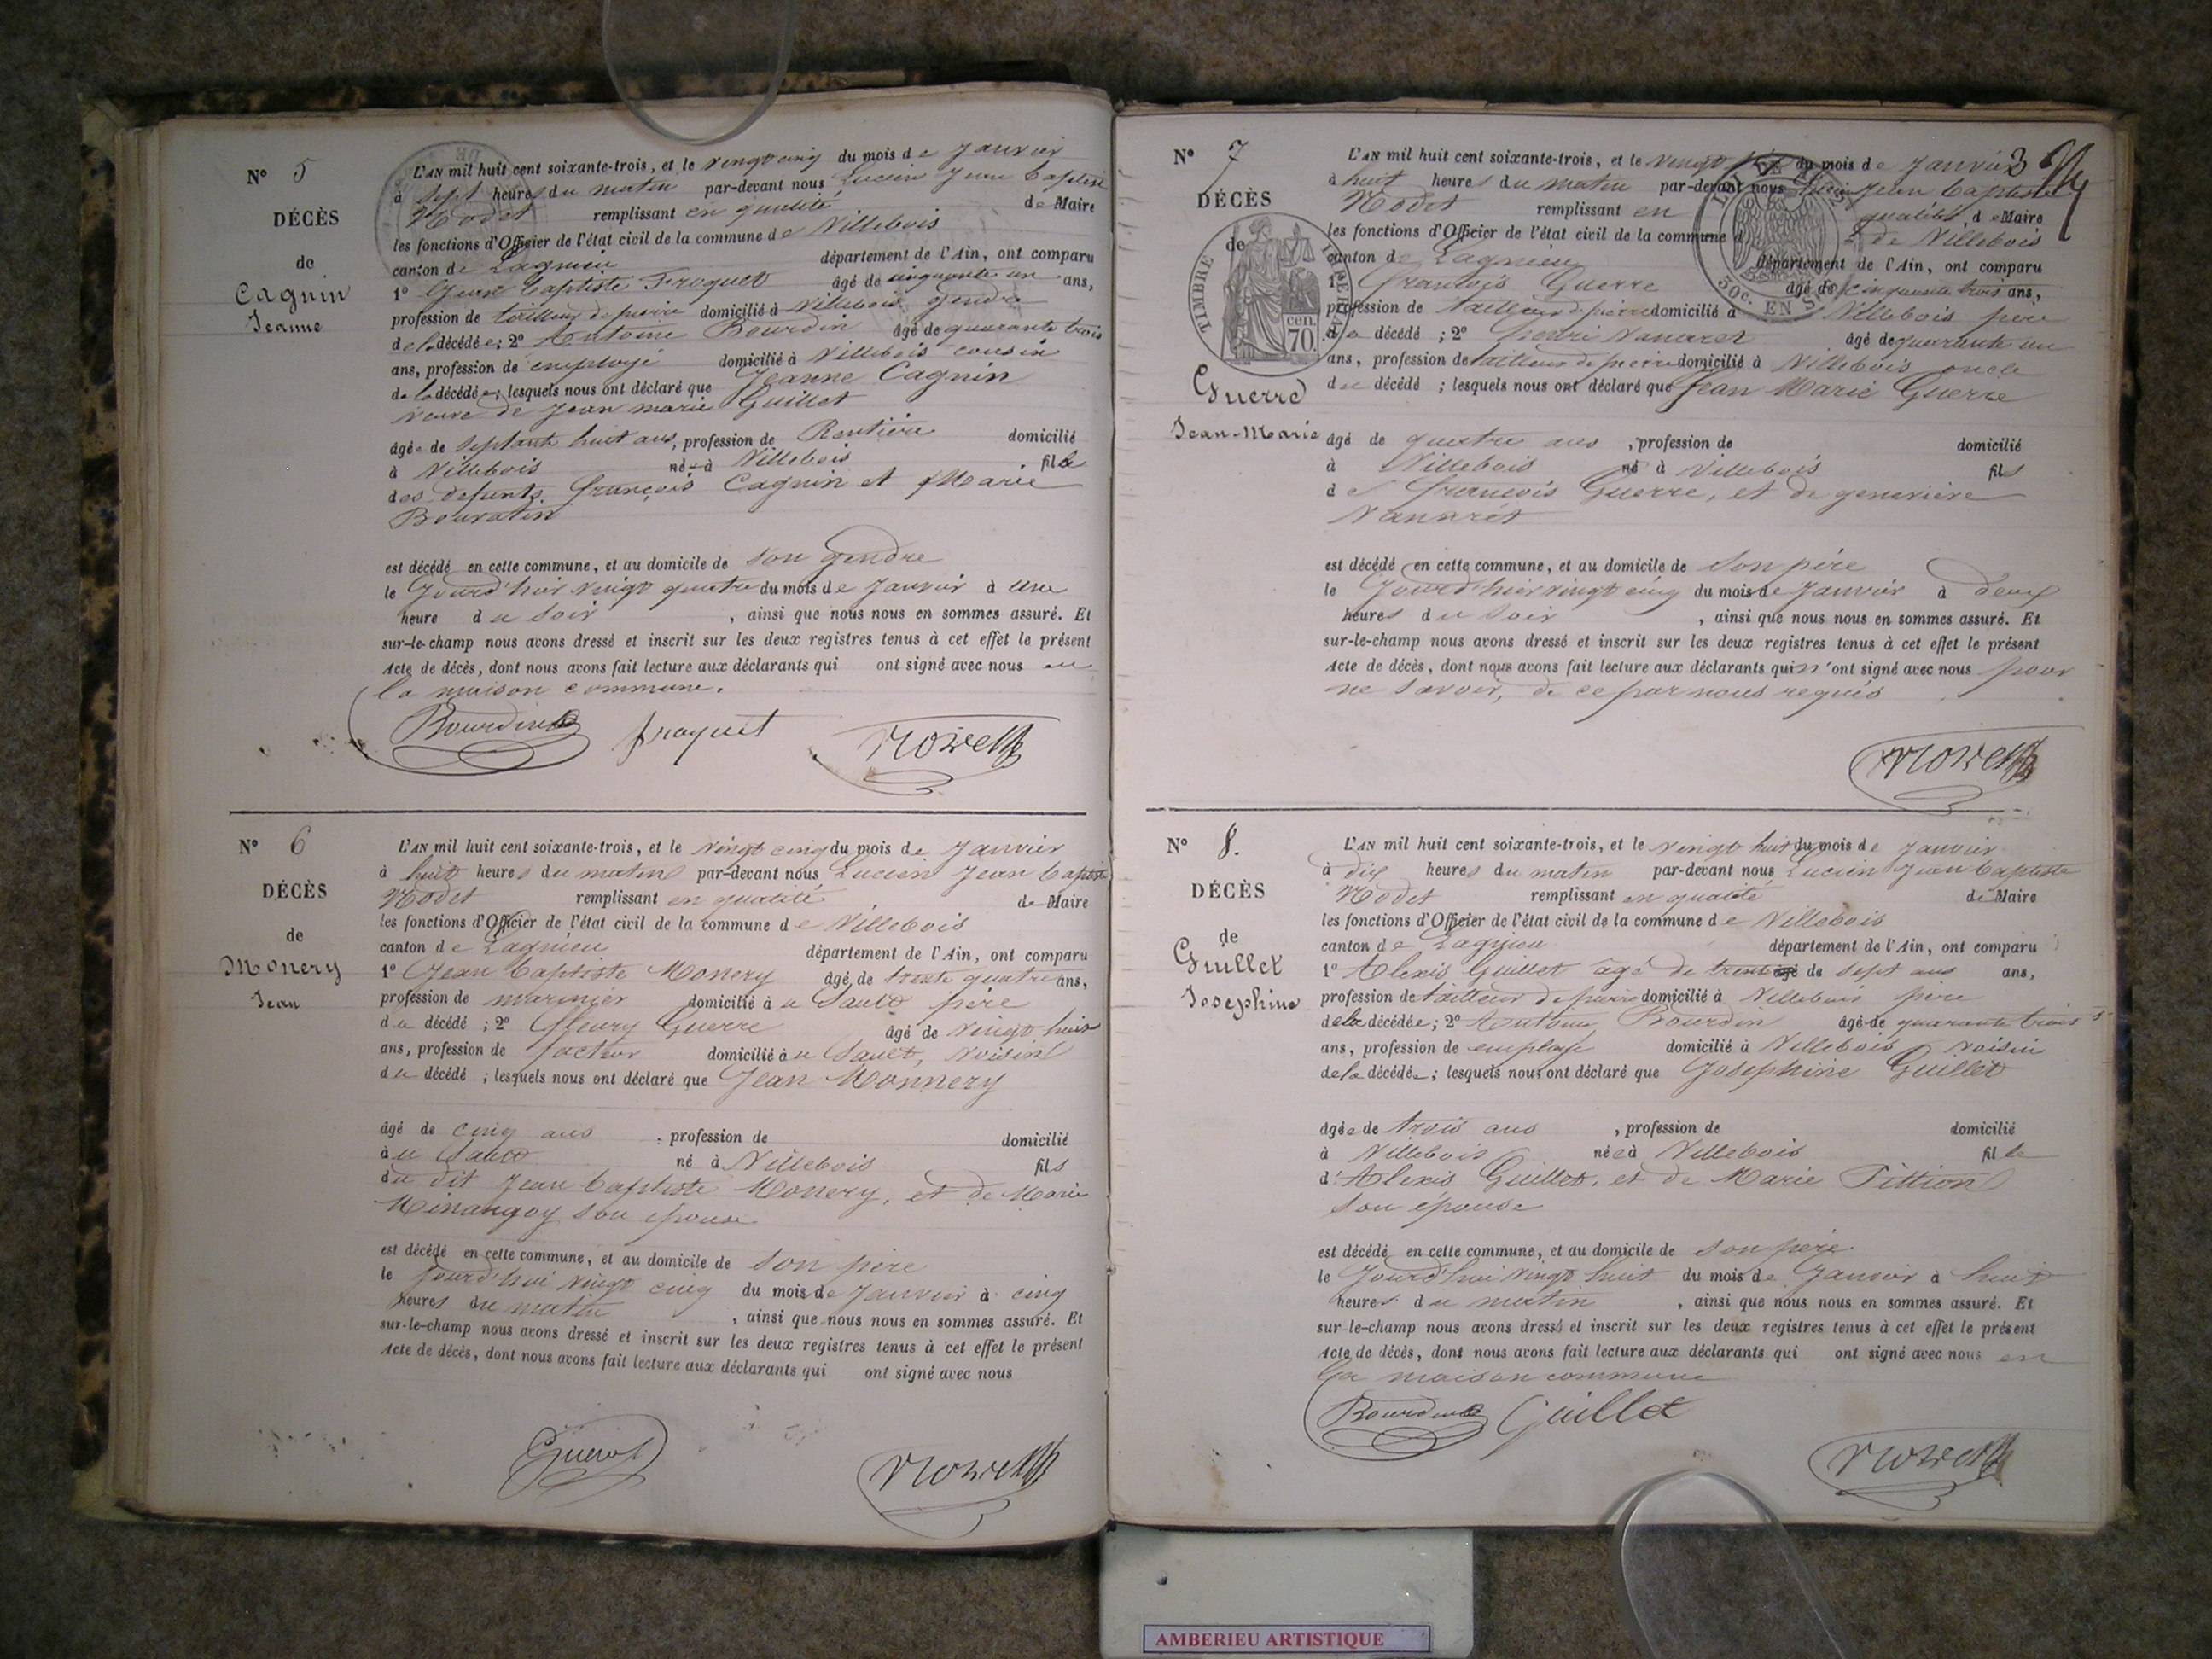 N° 5
DÉCÈS
de
Cagnin
Jeanne
L'AN mil huit cent soixante-trois, et le vingt cinq du mois de Janvier
à sept heures du matin par-devant nous Lucien Jean Baptiste
Nodet remplissant en qualité de Maire
les fonctions d'Officier de l'état civil de la commune de Villebois
canton de Lagnieu département de l'Ain, ont comparu
1° Jean Baptiste Froquet âgé de cinquante un ans,
profession de tailleur de pierre domicilié à Villebois gendre
de la décédée; 2° Antoine Bourdin âgé de quarante trois
ans, profession de employé domicilié à Villebois cousin
de la décédée; lesquels nous ont déclaré que Jeanne Cagnin
veuve de Jean marie Guillet
âgée de septante huit ans, profession de Rentière domicilié
à Villebois née à Villebois fille
des defunts françois Cagnin et Marie
Bouvatin
est décédé en cette commune, et au domicile de son gendre
le Jourd'hier vingt quatre du mois de Janvier à une
heure du soir , ainsi que nous nous en sommes assuré. Et
sur-le-champ nous avons dressé et inscrit sur les deux registres tenus à cet effet le présent
Acte de décès, dont nous avons fait lecture aux déclarants qui ont signé avec nous en
la maison commune.
Bourdin froquet
N° 6
DÉCÈS
de
Monery
Jean
L'AN mil huit cent soixante-trois, et le vingt cinq du mois de Janvier
à huit heures du matin par-devant nous Lucien Jean Baptiste
Nodet remplissant en qualité de Maire
les fonctions d'Officier de l'état civil de la commune de Villebois
canton de Lagnieu département de l'Ain, ont comparu
1° Jean Baptiste Monery âgé de trente quatre ans,
profession de marinier domicilié à u Sault père
du décédé ; 2° fleury Guerre âgé de vingt huit
ans, profession de facteur domicilié à u Sault, voisin
du décédé ; lesquels nous ont déclaré que Jean Monnery
âgé de cinq ans , profession de domicilié
à u Sault né à Villebois fils
du dit Jean Baptiste Monery, et de Marie
Minangoy son épouse
est décédé en cette commune, et au domicile de son père
le jourd'hui vingt cinq du mois de Janvier à cinq
heures du matin , ainsi que nous nous en sommes assuré. Et
sur-le-champ nous avons dressé et inscrit sur les deux registres tenus à cet effet le présent
Acte de décès, dont nous avons fait lecture aux déclarants qui ont signé avec nous
N° 7
DÉCÈS
de
Guerre
Jean-Marie
TIMBRE IMPERIAL
70 cen.
3
L'AN mil huit cent soixante-trois, et le vingt du mois de Janvier
à huit heures du matin par-devant nous Jean Baptiste
Nodet remplissant en qualité de Maire
les fonctions d'Officier de l'état civil de la commune de Villebois
canton de Lagnieu département de l'Ain, ont comparu
1° françois Guerre âgé de cinquante trois ans,
profession de tailleur de pierre domicilié à Villebois père
du décédé ; 2° henri Vanaret âgé de quarante un
ans, profession de tailleur de pierre domicilié à Villebois oncle
du décédé ; lesquels nous ont déclaré que Jean Marie Guerre
âgé de quatre ans , profession de domicilié
à Villebois né à Villebois fils
de françois Guerre, et de geneviève
Vanarêt
est décédé en cette commune, et au domicile de son père
le Jourd'hier vingt cinq du mois de Janvier à deux
heures du soir , ainsi que nous nous en sommes assuré. Et
sur-le-champ nous avons dressé et inscrit sur les deux registres tenus à cet effet le présent
Acte de décès, dont nous avons fait lecture aux déclarants qui n'ont signé avec nous pour
ne savoir, de ce par nous requis
N° 8.
DÉCÈS
de
Guillet
Josephine
L'AN mil huit cent soixante-trois, et le vingt huit du mois de Janvier
à dix heures du matin par-devant nous Lucien Jean Baptiste
Nodet remplissant en qualité de Maire
les fonctions d'Officier de l'état civil de la commune de Villebois
canton de Lagnieu département de l'Ain, ont comparu
1° Alexis Guillet âgé de trente âgé de sept ans ans,
profession de tailleur de pierre domicilié à Villebois père
de la décédée; 2° Antoine Bourdin âgé de quarante trois
ans, profession de employé domicilié à Villebois voisin
de la décédée; lesquels nous ont déclaré que Josephine Guillet
âgée de trois ans , profession de domicilié
à Villebois née à Villebois fille
d'Alexis Guillet, et de Marie Tittion
son épouse
est décédé en cette commune, et au domicile de son père
le Jourd'hui vingt huit du mois de Janvier à huit
heures du matin , ainsi que nous nous en sommes assuré. Et
sur-le-champ nous avons dressé et inscrit sur les deux registres tenus à cet effet le présent
Acte de décès, dont nous avons fait lecture aux déclarants qui ont signé avec nous en
la maison commune
Bourdin Guillet
AMBERIEU ARTISTIQUE